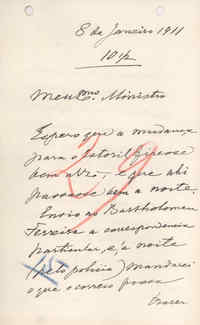 8 de Janeiro 1911
10 1/2
Meu Exmo. Ministro
Espero que a mudança
para o Estoril fizesse
bem a ..., e que ahi
passasse bem a noite.
Envio ao Bartholomeu
Ferreira a correspondencia
particular, e, á noite
(pelo policia) mandarei
o que o correio possa
trazer
29